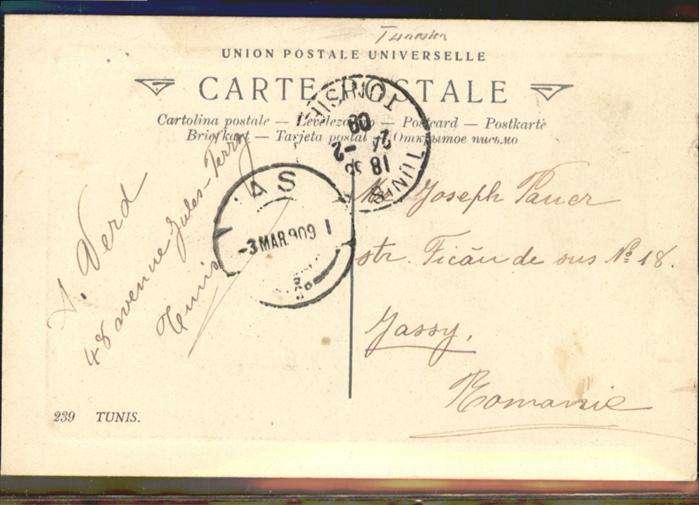 Tunisien
UNION POSTALE UNIVERSELLE
CARTE POSTALE
Cartolina postale — Levelezö — Postcard — Postkarte
Briefkart — Tarjeta postal — Открытое письмо
TUNIS
18
24 -2
09
AS
-3 MAR 909 1
A. Verd
48 avenue Jules-Ferry
Tunis
Mr Joseph Pauer
str. Ticău de sus No 18.
Jassy,
Romanie
239 TUNIS.